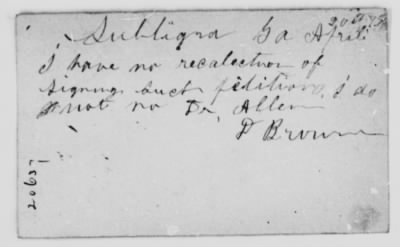 Subligna Ga April 20th 75
I have no recalection of
signing such petition, I do
not no Dr, Allen
P Brown
20637